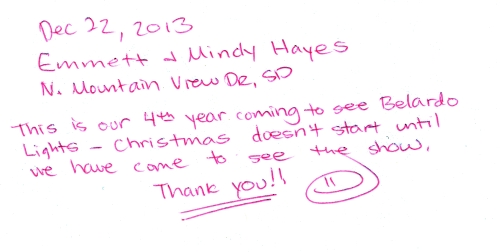 Dec 22, 2013
Emmett & Mindy Hayes
N. Mountain View DR, SD
This is our 4th year coming to see Belardo
Lights - Christmas doesn't start until
we have come to see the show.
Thank you!!